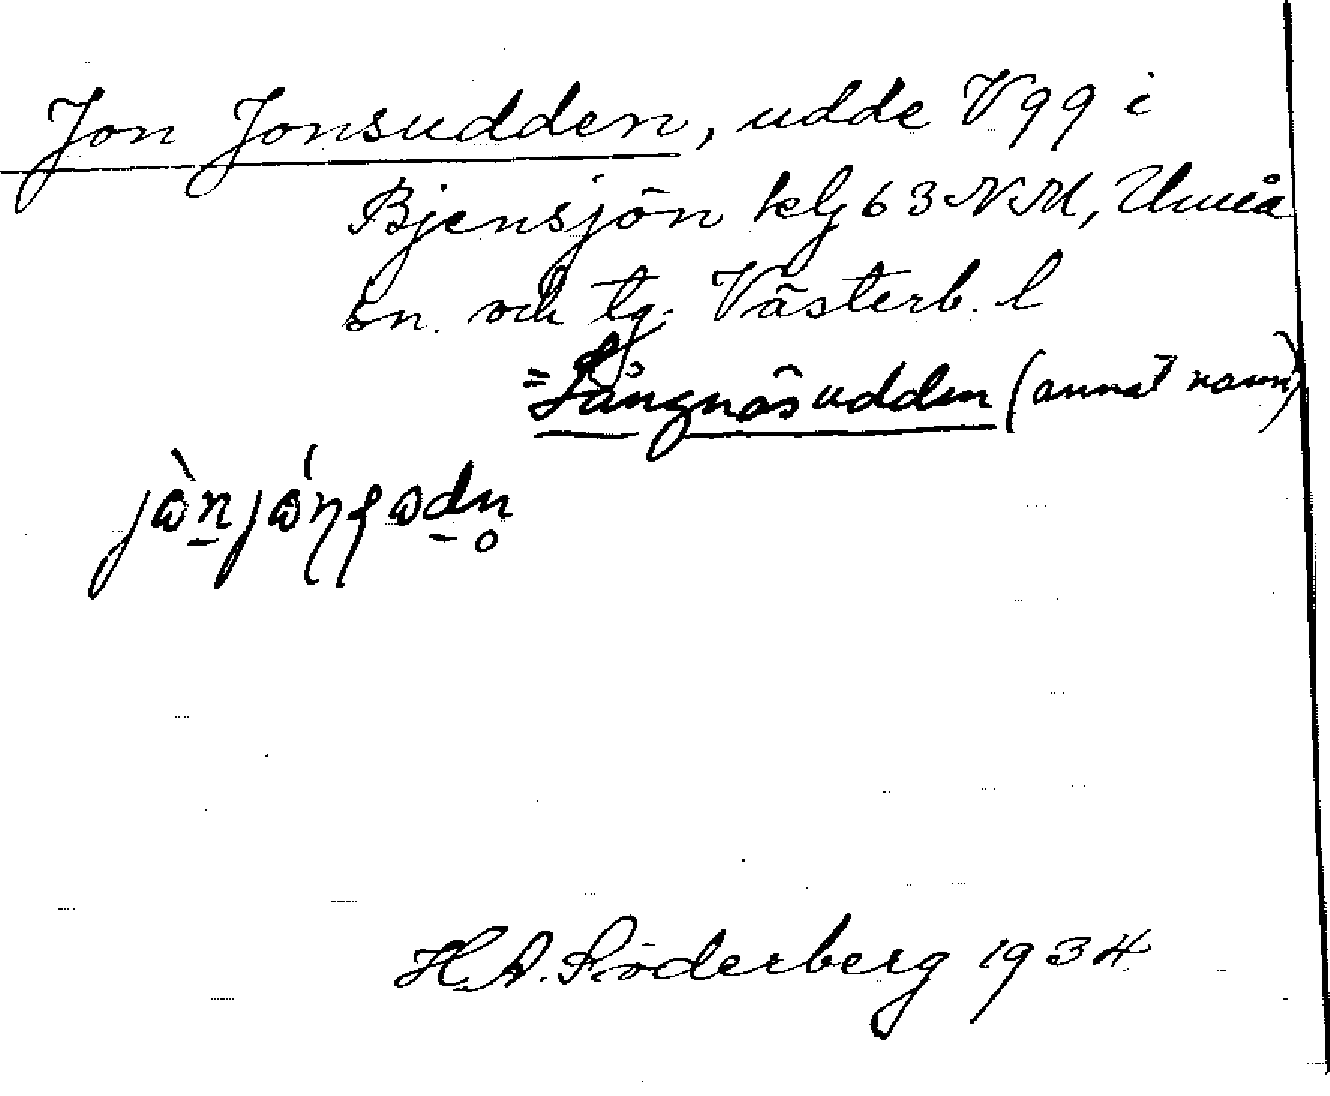 Jon Jonsudden, udde V 99 i
Bjensjön klg 63 NM, Umeå
sn. och tg. Västerb. l
= Långnäsudden (annat namn)
H. A. Söderberg 1934